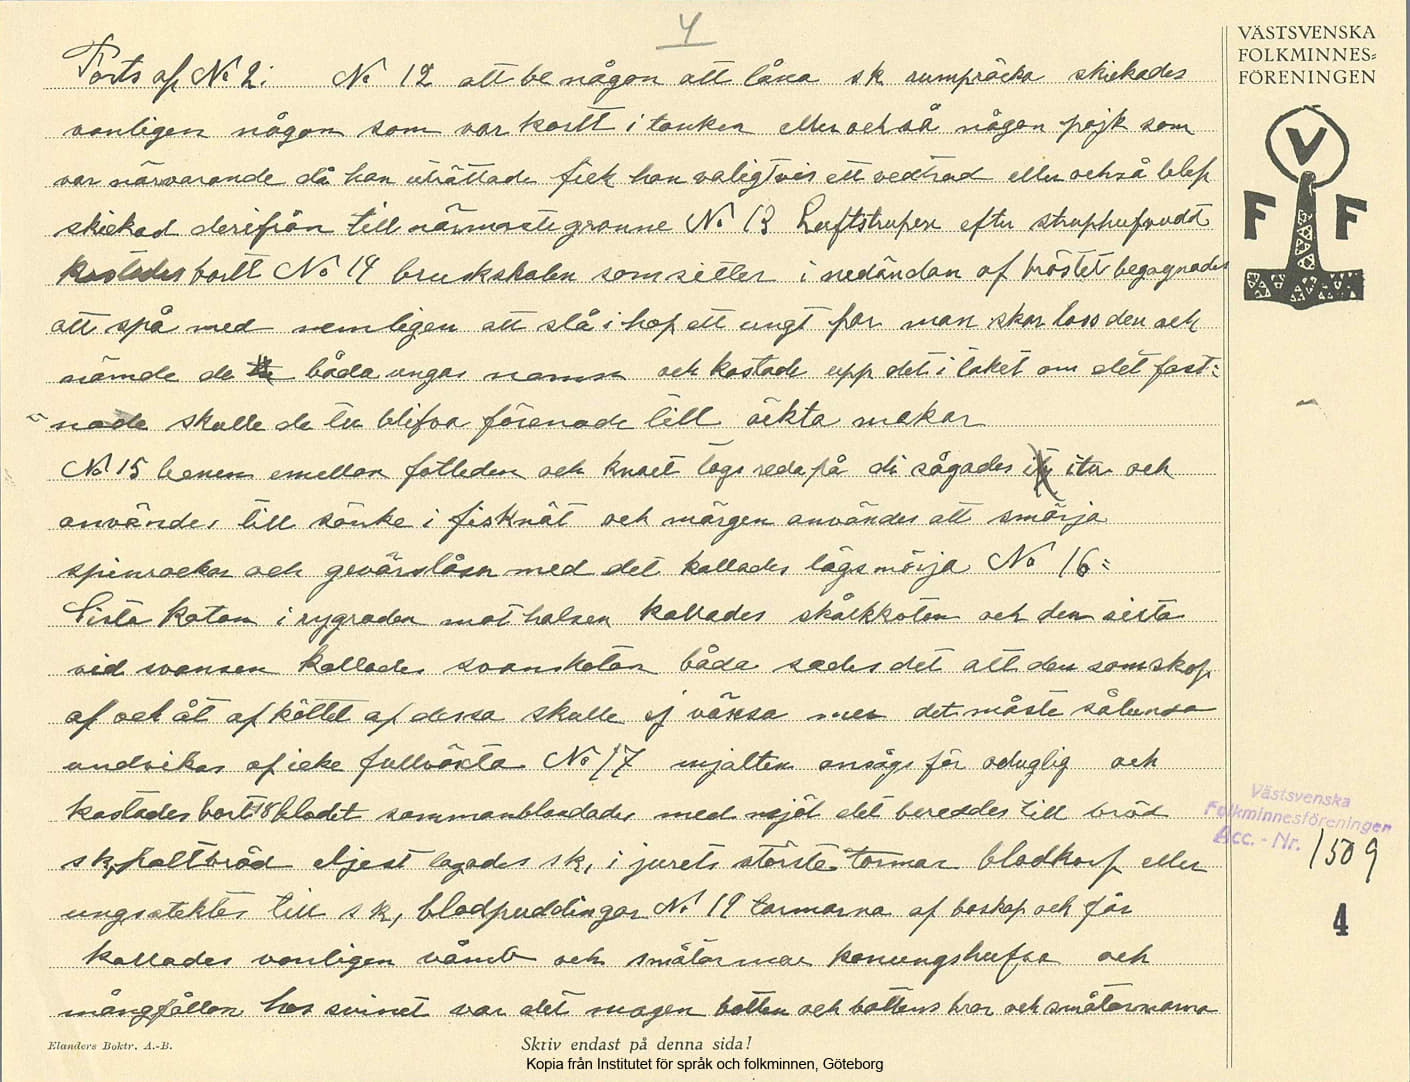 4
Forts af No 2: No 12 att be någon att låna sk rumpräcka skickades
vanligen någon som var kortt i tanken eller också någon pojk som
var närvarande då han uträttade fick han valigtvis ett vedträd eller också blef
skickad derifrån till närmaste granne No 13 Luftstrupen efter struphufvudt
kastades bortt No 14 bruskskalen som sitter i nedändan af bröstet begagnades
att spå med nemligen att slå i hop ett ungt par man skar loss den och
nämde de båda ungas namn och kastade upp det i taket om det fast=
=nade skulle de tu blifva förenade till äkta makar
No 15 benen emellan fotleden och knäet togs reda på di sågades itu och
användes till sänke i fisknät och märgen användes att smörja
spinrockar och gevärslåsen med det kallades lägsmörja No 16=
Sista kotan i rygraden mot halsen kallades skålkkotan och den sista
vid svansen kallades svanskotan båda sades det att den som skop
af och åt af köttet af dessa skulle ej växsa mer det måste sålunda
undvikas af icke fullväxta No 17 mjälten ansågs för oduglig och
kastades bort 18 blodet sammanblandades med mjöl det bereddes till bröd
sk, paltbröd eljest lagades sk, i jurets största tarmar blodkorf eller
ungsstektes till sk, blodpuddingar No 19 tarmarna af boskap och får
kallades vanligen våmb och småtarmar konungshufva och
mångfållan hos svinet var det magen botten och bottens bror och småtarmarna
VÄSTSVENSKA
FOLKMINNES=
FÖRENINGEN
V
F F
Västsvenska
Folkminnesföreningen
Acc.-Nr. 1509
4
Elanders Boktr. A.-B.
Skriv endast på denna sida!
Kopia från Institutet för språk och folkminnen, Göteborg